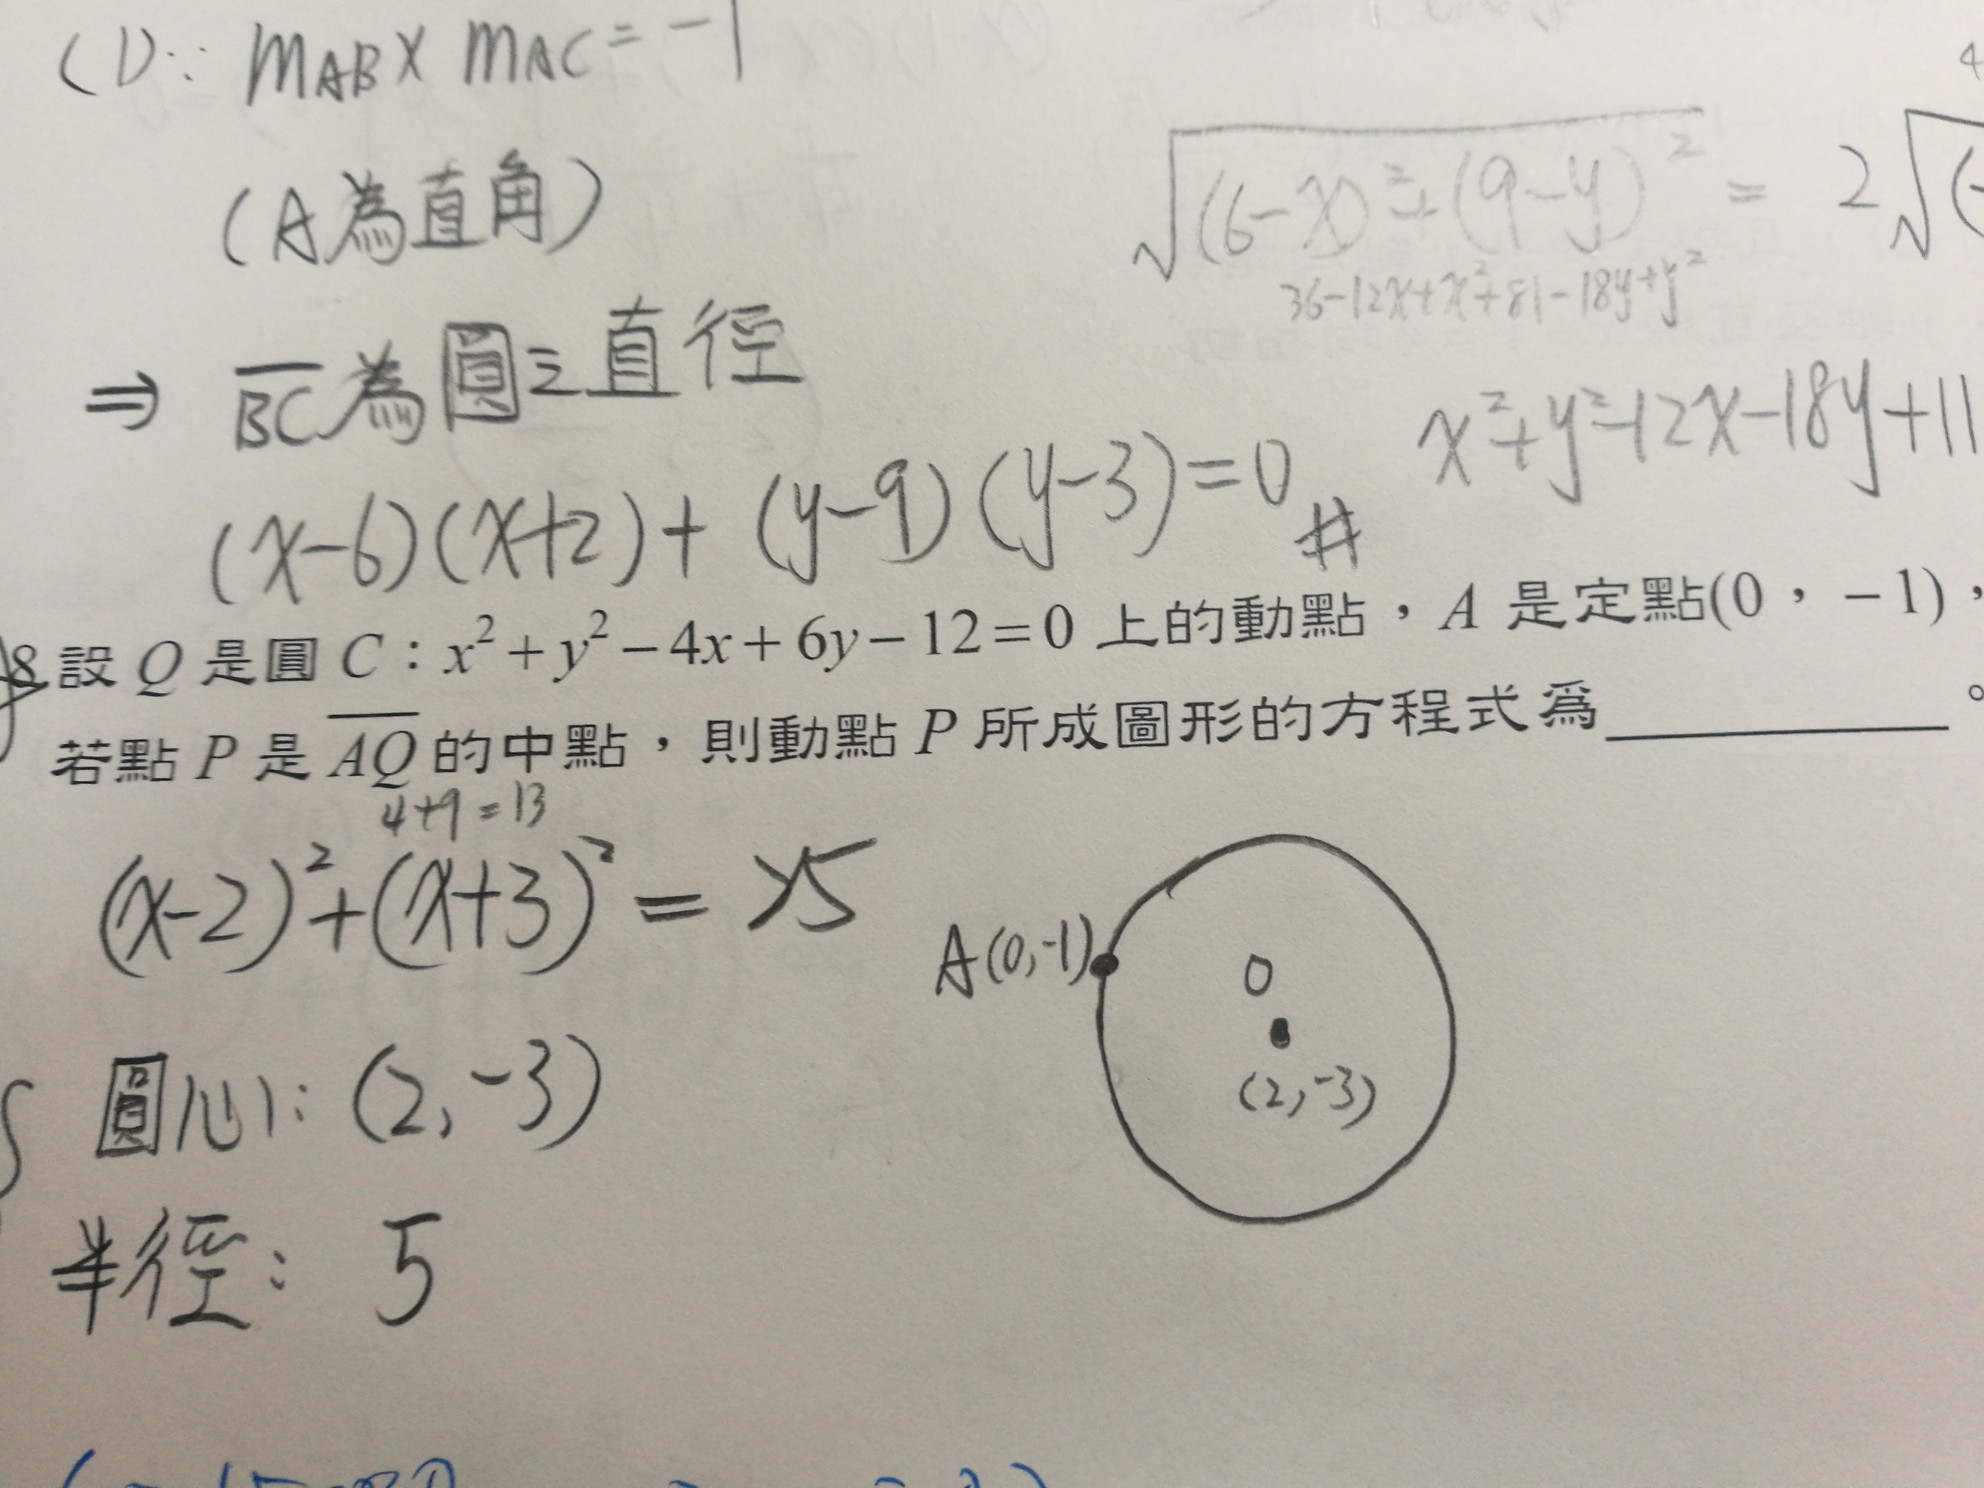 (1)∵ mAB × mAC = -1
(A為直角)
⇒ BC為圓之直徑
(x-6)(x+2)+(y-9)(y-3)=0 #
√(6-x)²+(9-y)² = 2√(-
36-12x+x²+81-18y+y²
x²+y²-12x-18y+11
8 設 Q 是圓 C：x²+y²-4x+6y-12=0 上的動點，A 是定點(0，-1)，
若點 P 是 AQ 的中點，則動點 P 所成圖形的方程式為＿＿＿＿。
4+9=13
(x-2)²+(x+3)² = 25
圓心: (2,-3)
半徑: 5
A(0,-1)
O
(2,-3)